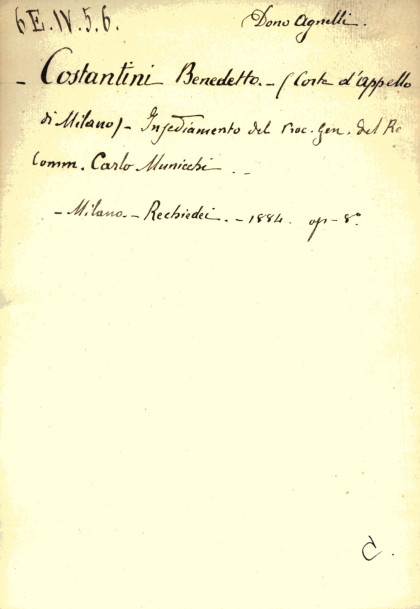 6E.IV.5.6.
Dono Agnelli.
- Costantini Benedetto. - (Corte d'Appello
di Milano) - Insediamento del Proc. Gen. del Re
Comm. Carlo Municchi . -
- Milano. - Rechiedei. - 1884. op - 8º
C.